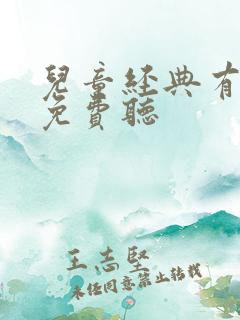 兒童經典有
免費聽
王志堅
未經同意禁止轉載